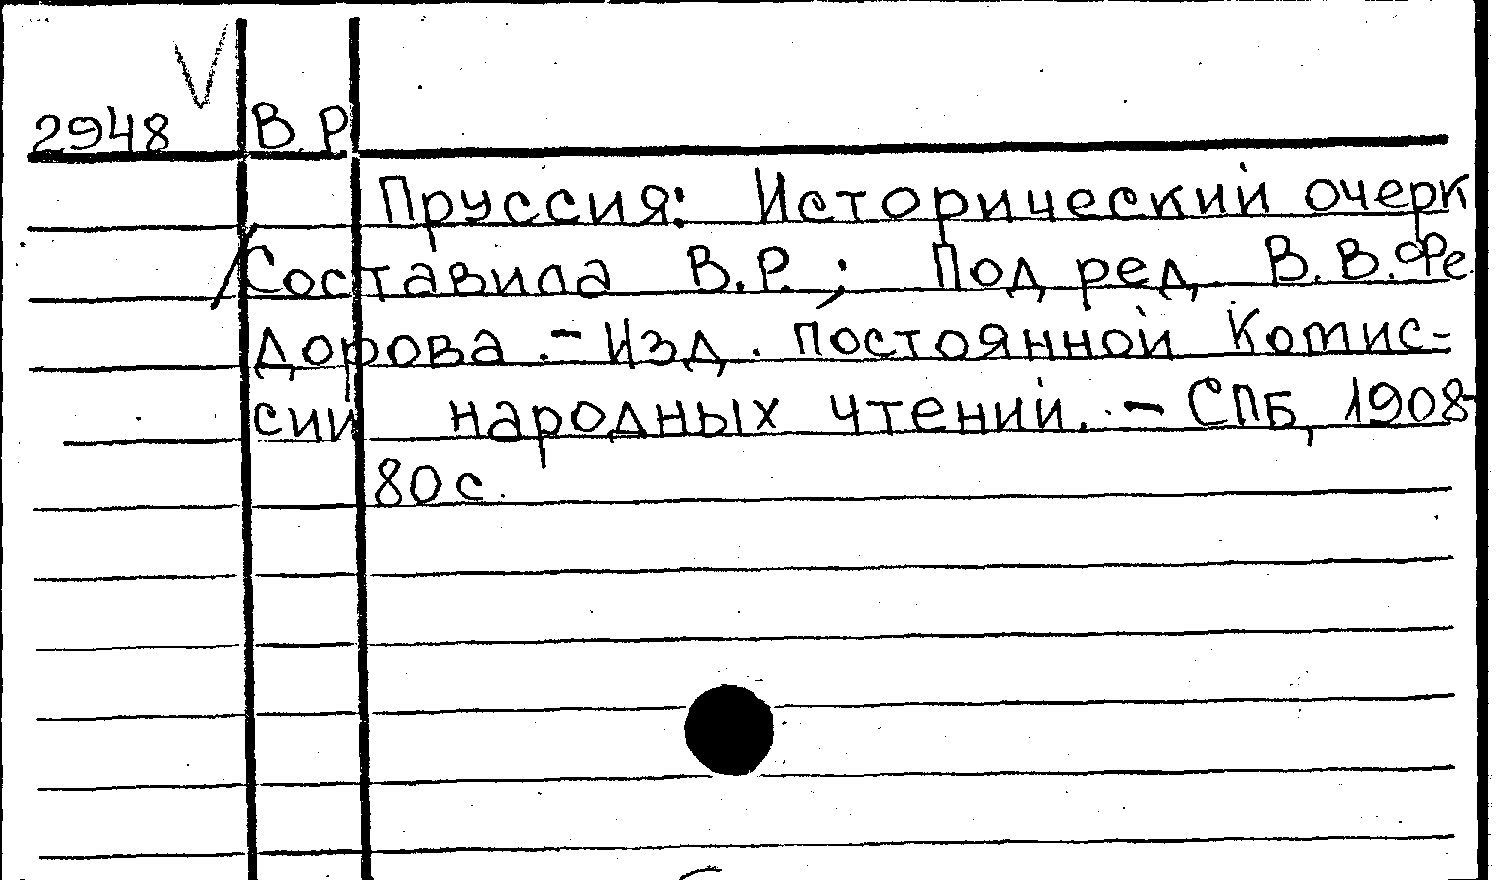 2948 В. Р.
Пруссия: Исторический очерк
/Составила В.Р. ; Под ред. В.В.Фе
дорова .- Изд. постоянной Комис-
сии народных чтений. - СПБ, 1908-
80 с.